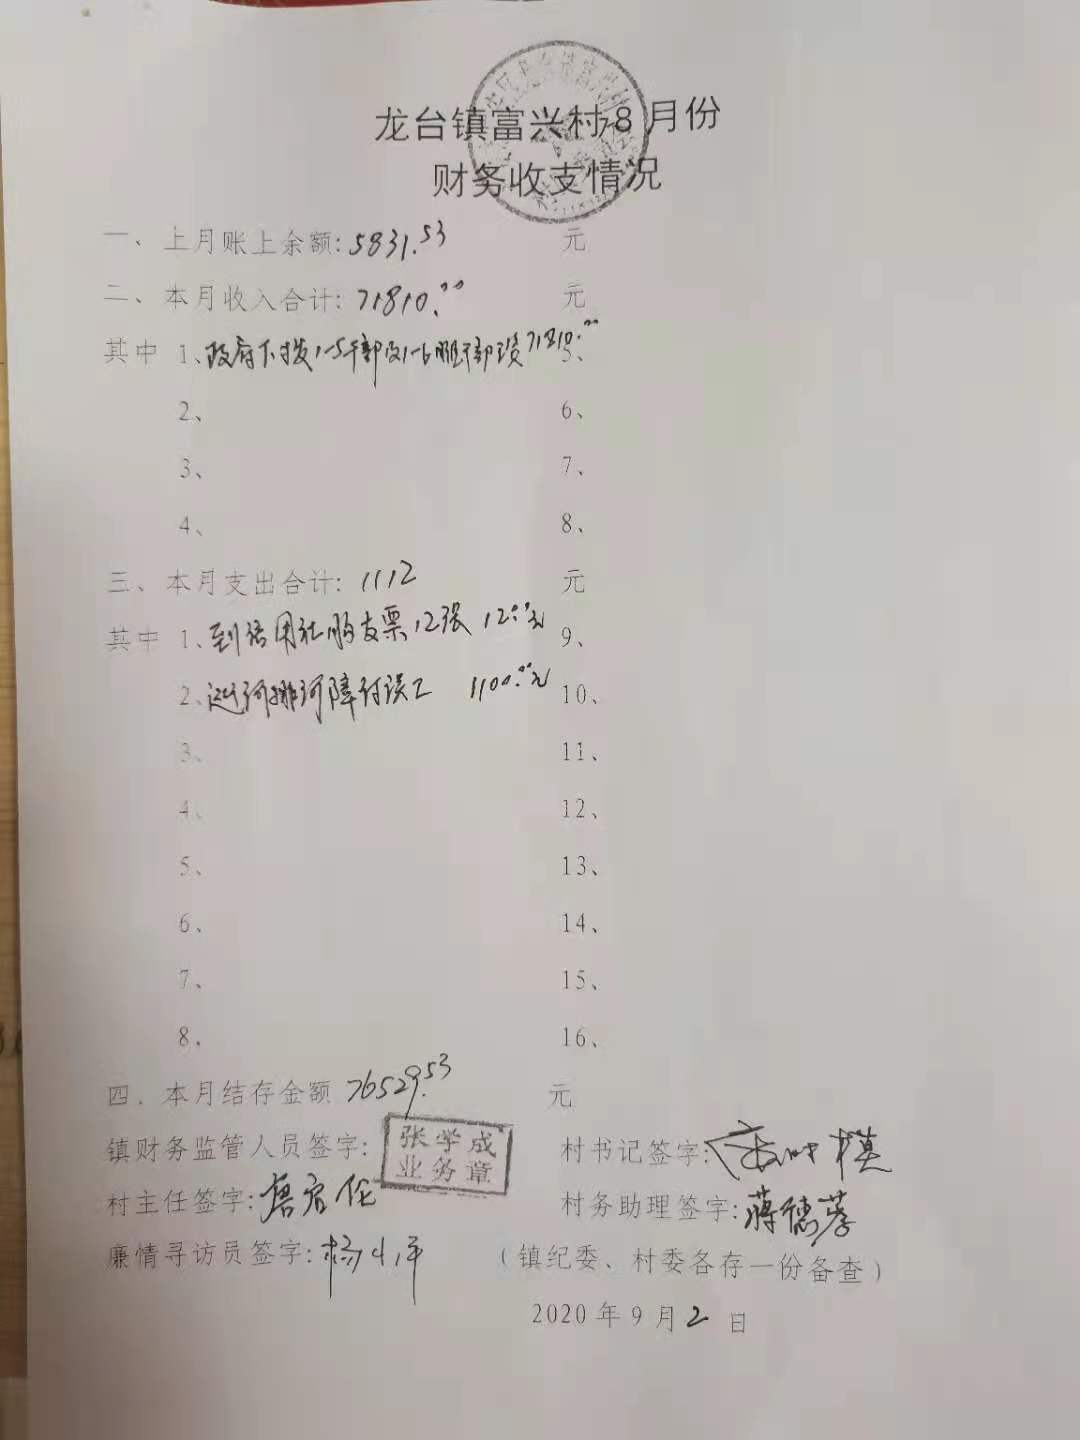 龙台镇富兴村8月份
财务收支情况
一、上月账上余额:5831.53 元
二、本月收入合计:71810.00 元
其中 1、政府下拨1-5干部及1-6 干部 资71810.00 5、
2、 6、
3、 7、
4、 8、
三、本月支出合计: 1112 元
其中 1、到信用社购支票12张 12.00元 9、
2、巡河排河障付误工 1100.00元 10、
3、 11、
4、 12、
5、 13、
6、 14、
7、 15、
8. 16、
四.本月结存金额 76529.53 元
镇财务监管人员签字: 张学成 业务章 村书记签字:
村主任签字: 村务助理签字:蒋德
廉情寻访员签字:杨小平 (镇纪委、村委各存一份备查)
2020年9月2日